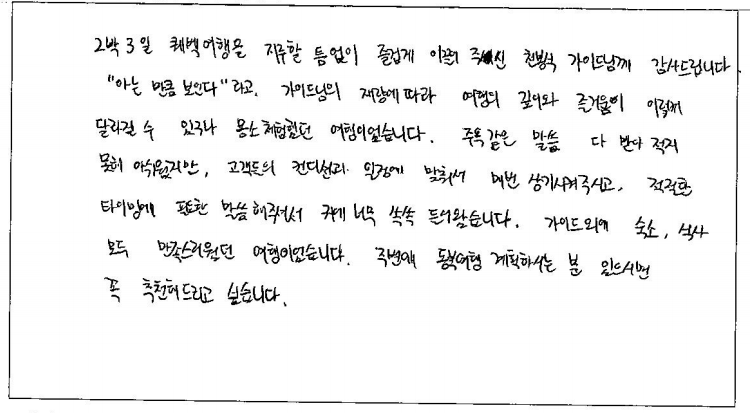 2박 3일 퀘벡여행을 지루할 틈없이 즐겁게 이끌어 주신 천봉식 가이드님께 감사드립니다.
"아는 만큼 보인다"라고. 가이드님의 재량에 따라 여행의 깊이와 즐거움이 이렇게
달라질 수 있구나 몸소 체험했던 여행이었습니다. 주옥같은 말씀 다 받아 적지
못해 아쉬웠지만, 고객들의 컨디션과 일정에 맞춰서 매번 상기시켜주시고, 적절한
타이밍에 필요한 말씀해주셔서 귀에 너무 쏙쏙 들어왔습니다. 가이드외에 숙소, 식사
모두 만족스러웠던 여행이었습니다. 주변에 동부여행 계획하시는 분 있으시면
꼭 추천해드리고 싶습니다.